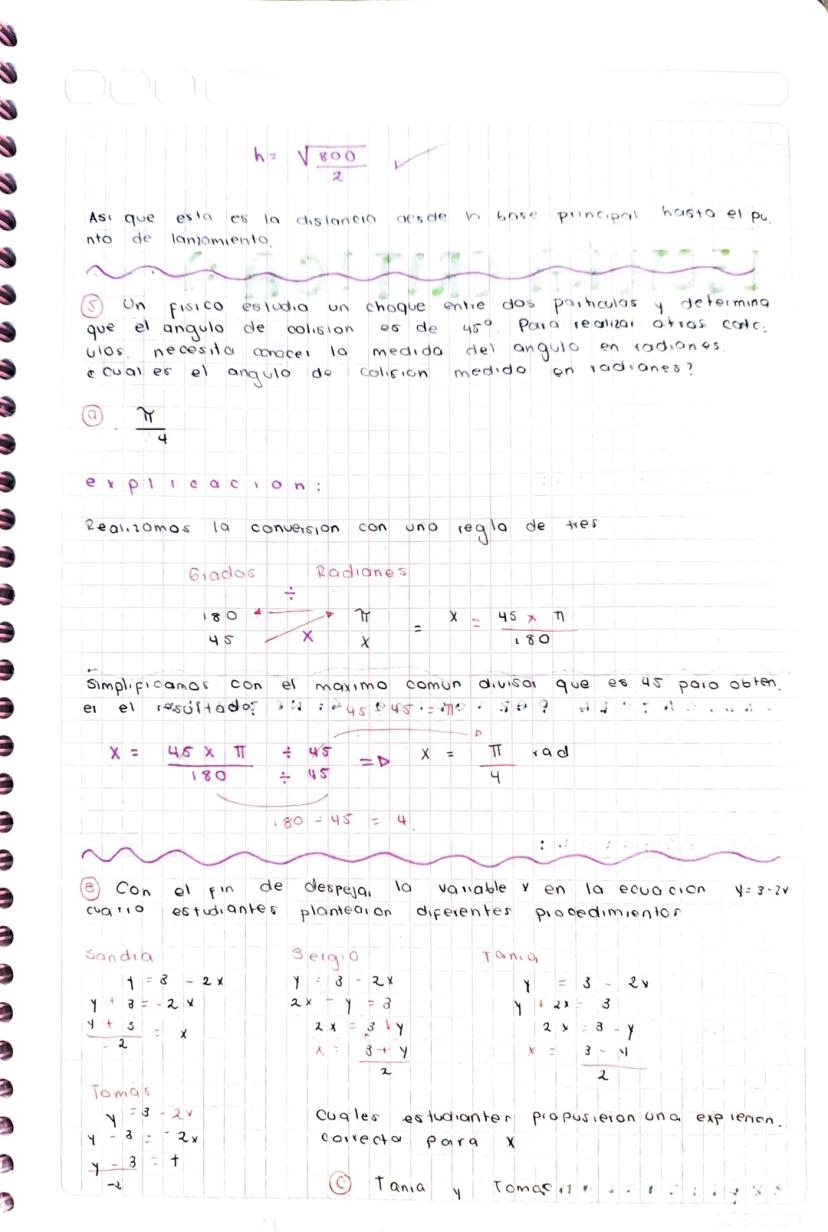 h = √800
2
Asi que esta es la distancia desde la base principal hasta el pu
nto de lanzamiento.
⑤ Un fisico estudia un choque entre dos particulas y determina
que el angulo de colision es de 45° Para realizar otros calc
ulos, necesita conocer la medida del angulo en radianes.
¿cual es el angulo de colision medido en radianes?
ⓐ π
4
explicacion:
Realizamos la conversion con una regla de tres
Grados Radianes
÷
180 π = x = 45 x π
45 x x 180
Simplificamos con el maximo comun divisor que es 45 para obten
er el resultado:
x = 45 x π ÷ 45 => x = π rad
180 ÷ 45 4
180 ÷ 45 = 4
⑧ Con el fin de despejar la variable x en la ecuacion y = 3-2x
cuatro estudiantes plantearon diferentes procedimientos
Sandra Sergio Tania
y = 3 - 2x y = 3 - 2x y = 3 - 2x
y + 3 = -2x 2x - y = 3 y + 2x = 3
y + 3 = x 2x = 3 + y 2x = 3 - y
-2 x = 3 + y x = 3 - y
2 2
Tomas
y = 3 - 2x Cuales estudiantes propusieron una expresion
y - 3 = -2x correcta para x
y - 3 =
-2 ⓒ Tania y Tomas